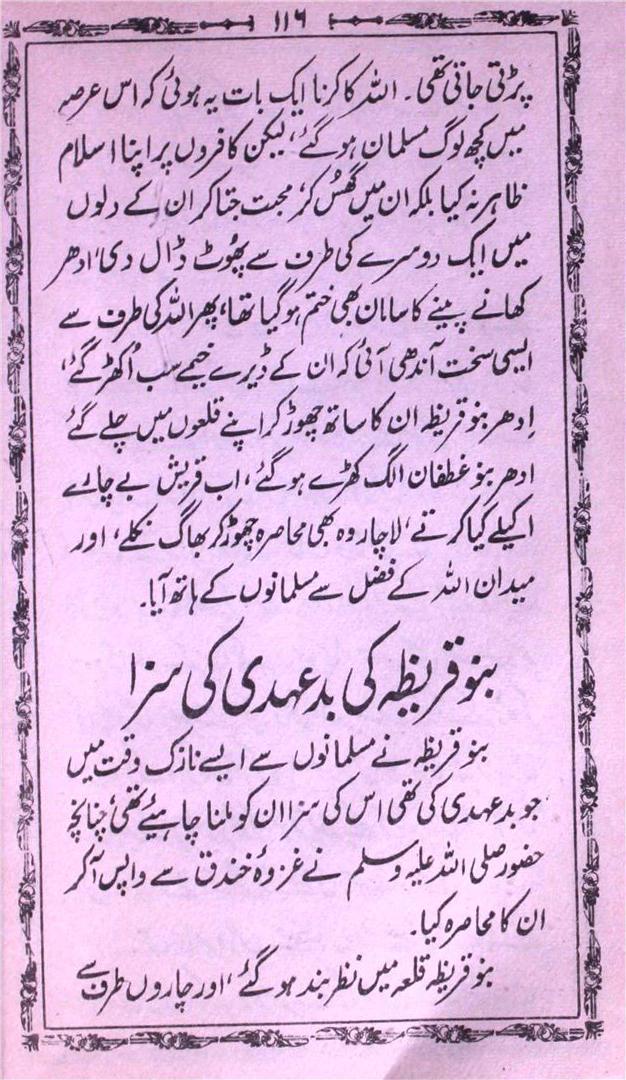 ۱۱۶
پڑتی جاتی تھی۔ اللہ کا کرنا ایک بات یہ ہوئی کہ اس عرصہ
میں کچھ لوگ مسلمان ہو گئے، لیکن کافروں پر اپنا اسلام
ظاہر نہ کیا بلکہ ان میں گھُس کر، محبت جتا کر ان کے دلوں
میں ایک دوسرے کی طرف سے پھُوٹ ڈال دی، ادھر
کھانے پینے کا سامان بھی ختم ہو گیا تھا، پھر اللہ کی طرف سے
ایسی سخت آندھی آئی کہ ان کے ڈیرے خیمے سب اُکھڑ گئے،
اِدھر بنو قریظہ ان کا ساتھ چھوڑ کر اپنے قلعوں میں چلے گئے
ادھر بنو غطفان الگ کھڑے ہو گئے، اب قریش بے چارے
اکیلے کیا کرتے، لاچار وہ بھی محاصرہ چھوڑ کر بھاگ نکلے، اور
میدان اللہ کے فضل سے مسلمانوں کے ہاتھ آیا۔
بنو قریظہ کی بدعہدی کی سزا
بنو قریظہ نے مسلمانوں سے ایسے نازک وقت میں
جو بدعہدی کی تھی اس کی سزا ان کو ملنا چاہیئے تھی، چنانچہ
حضور صلی اللہ علیہ وسلم نے غزوۂ خندق سے واپس آ کر
ان کا محاصرہ کیا۔
بنو قریظہ قلعہ میں نظر بند ہو گئے، اور چاروں طرف سے